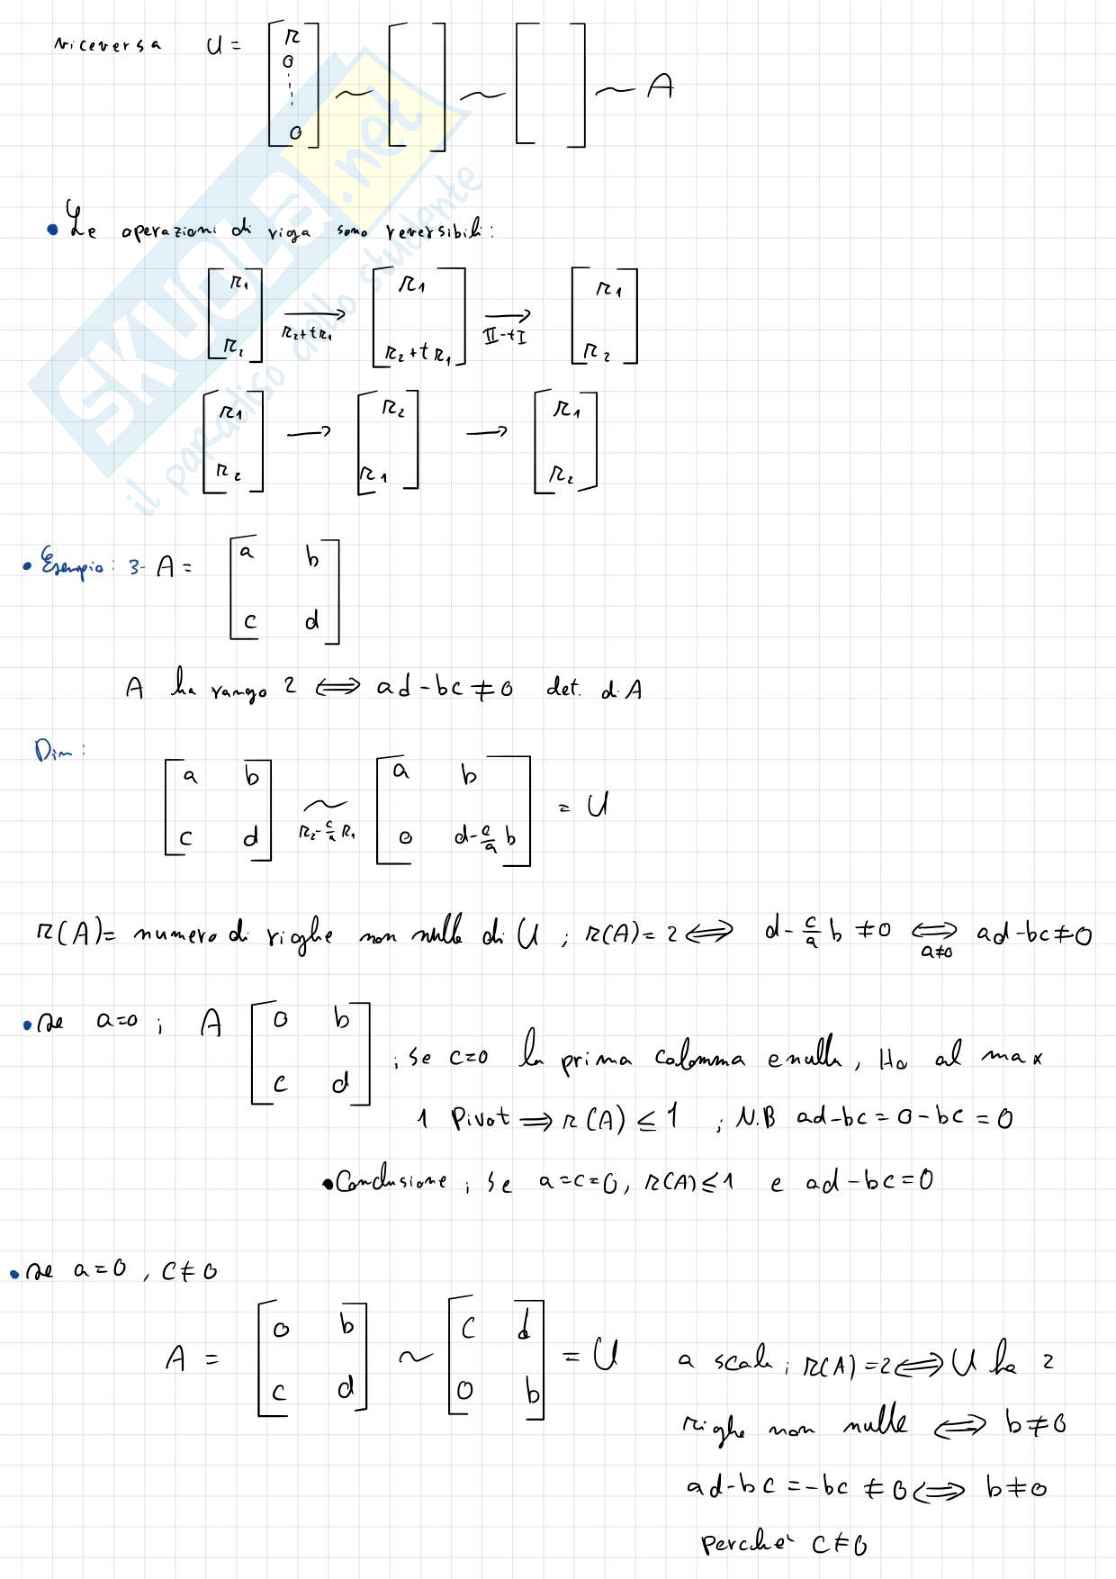 viceversa U = [ R 0 ⋮ 0 ] ~ [ ] ~ [ ] ~ A
• Le operazioni di riga sono reversibili:
[ R₁ R₂ ] → R₂+tR₁ [ R₁ R₂+tR₁ ] → II-tI [ R₁ R₂ ]
[ R₁ R₂ ] → [ R₂ R₁ ] → [ R₁ R₂ ]
• Esempio: 3- A = [ a b c d ]
A ha rango 2 ⟺ ad-bc ≠ 0 det. di A
Dim:
[ a b c d ] ~ R₂-c/a R₁ [ a b 0 d-c/a b ] = U
R(A)= numero di righe non nulle di U ; R(A)=2 ⟺ d-c/a b ≠0 ⟺ a≠0 ad-bc≠0
• se a=0 ; A [ 0 b c d ] ; se c=0 la prima colonna e nulla, Ha al max
1 Pivot ⟹ R(A) ≤ 1 ; N.B ad-bc = 0-bc = 0
• Conclusione ; se a=c=0, R(A)≤1 e ad-bc=0
• se a=0 , c≠0
A = [ 0 b c d ] ~ [ c d 0 b ] = U a scala ; R(A)=2 ⟺ U ha 2
righe non nulle ⟺ b≠0
ad-bc = -bc ≠ 0 ⟺ b≠0
perche' c≠0
SKUOLA.net
il paradiso dello studente